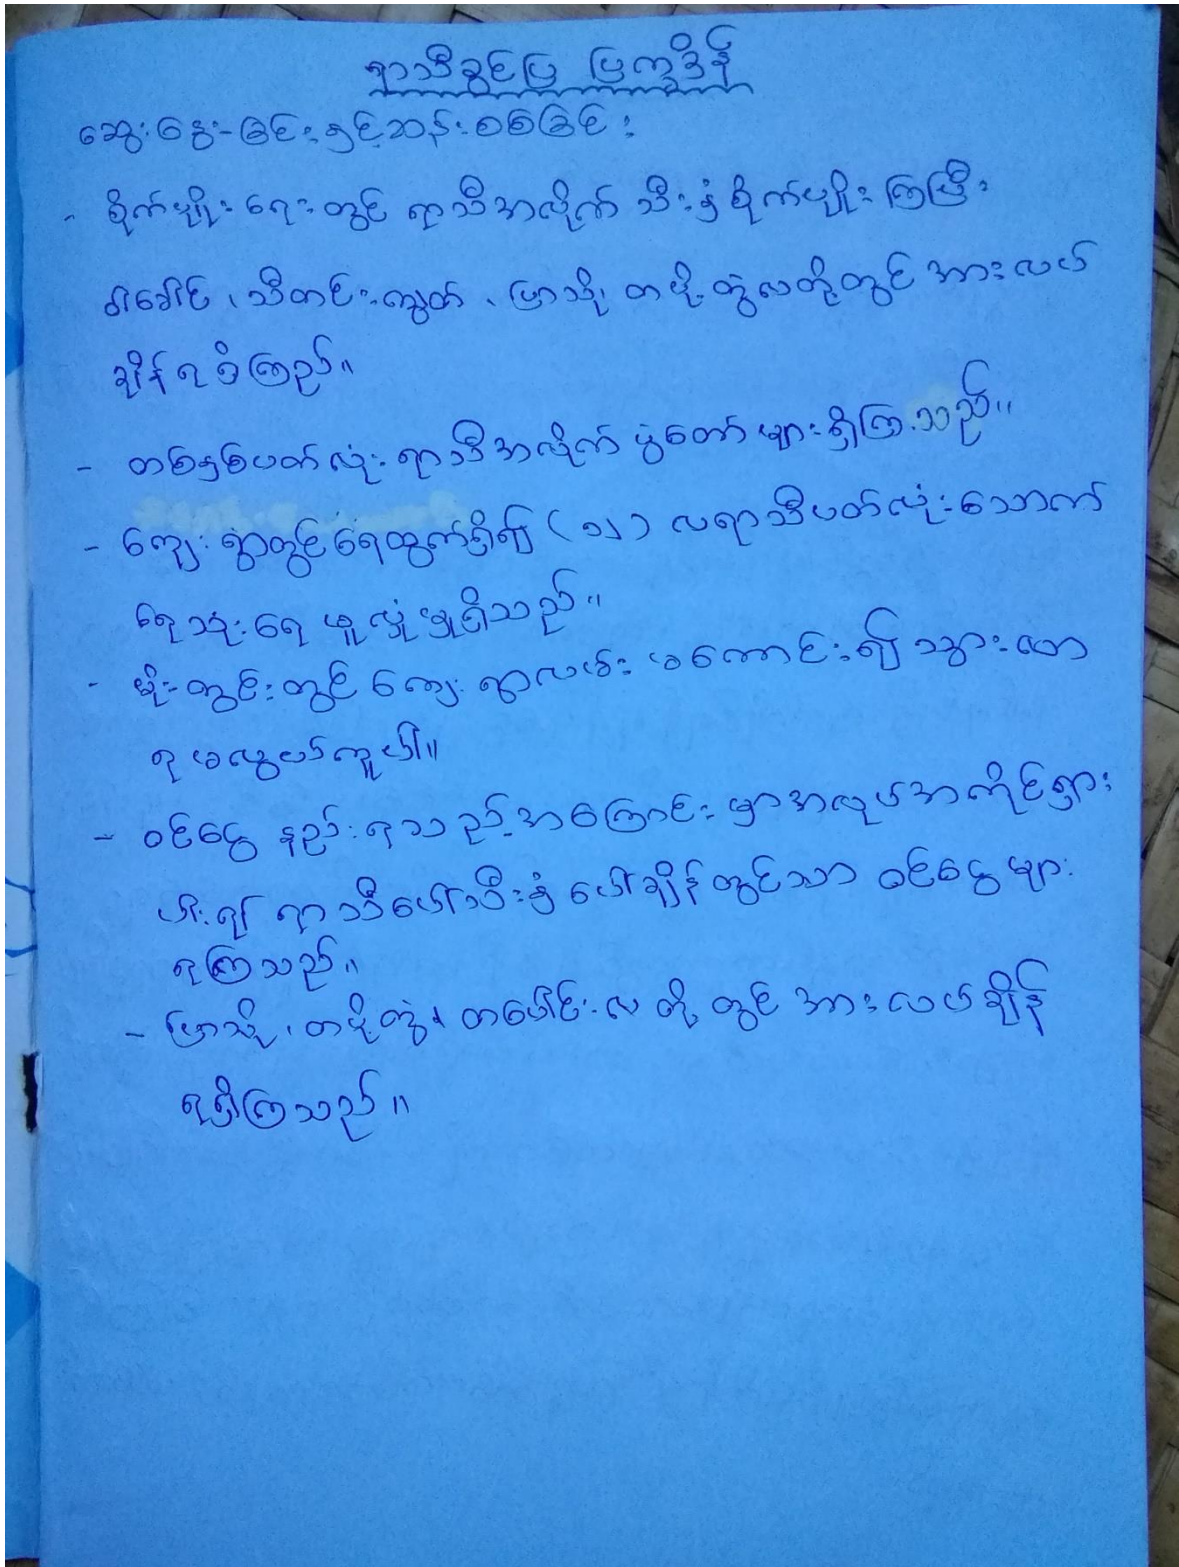 ရာသီခွင်ပြ ပြက္ခဒိန်
ဆွေးနွေးခြင်းနှင့်ဆန်းစစ်ခြင်း
- စိုက်ပျိုးရေးတွင် ရာသီအလိုက် သီးနှံစိုက်ပျိုးကြပြီး
ဝါခေါင်၊ သီတင်းကျွတ်၊ ပြာသို၊ တပို့တွဲလတို့တွင် အားလပ်
ချိန်ရှိကြသည်။
- တစ်နှစ်ပတ်လုံး ရာသီအလိုက် ပွဲတော်များရှိကြသည်။
- ကျေးရွာတွင်ရေထွက်ရှိ၍ (၁၂) လရာသီပတ်လုံးသောက်
ရေသုံးရေ ဖူလုံမှုရှိသည်။
- မိုးတွင်းတွင် ကျေးရွာလမ်း မကောင်း၍ သွားလာ
ရ မလွယ်ကူပါ။
- ဝင်ငွေ နည်းရသည့်အကြောင်းမှာအလုပ်အကိုင်ရှား
ပါး၍ ရာသီပေါ်သီးနှံ ပေါ်ချိန်တွင်သာ ဝင်ငွေများ
ရကြသည်။
- ပြာသို၊ တပို့တွဲ၊ တပေါင်းလ တို့တွင် အားလပ်ချိန်
ရရှိကြသည်။